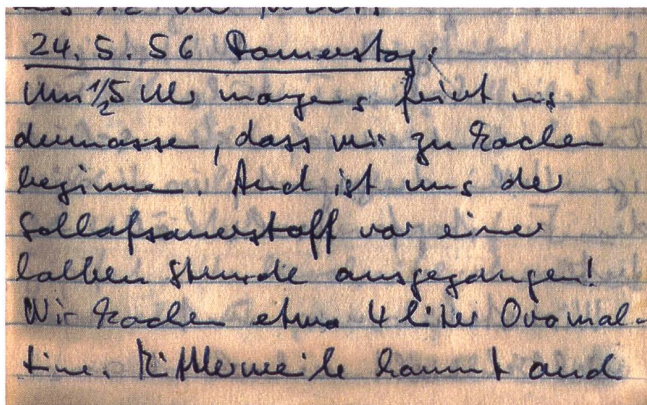 24.5.56 Donnerstag:
Um ½5 Uhr morgens friert uns
dermassen, dass wir zu kochen
beginnen. Auch ist uns der
Schlafsauerstoff vor einer
halben Stunde ausgegangen!
Wir kochen etwa 4 liter Ovomal-
tine. Mittlerweile kommt auch